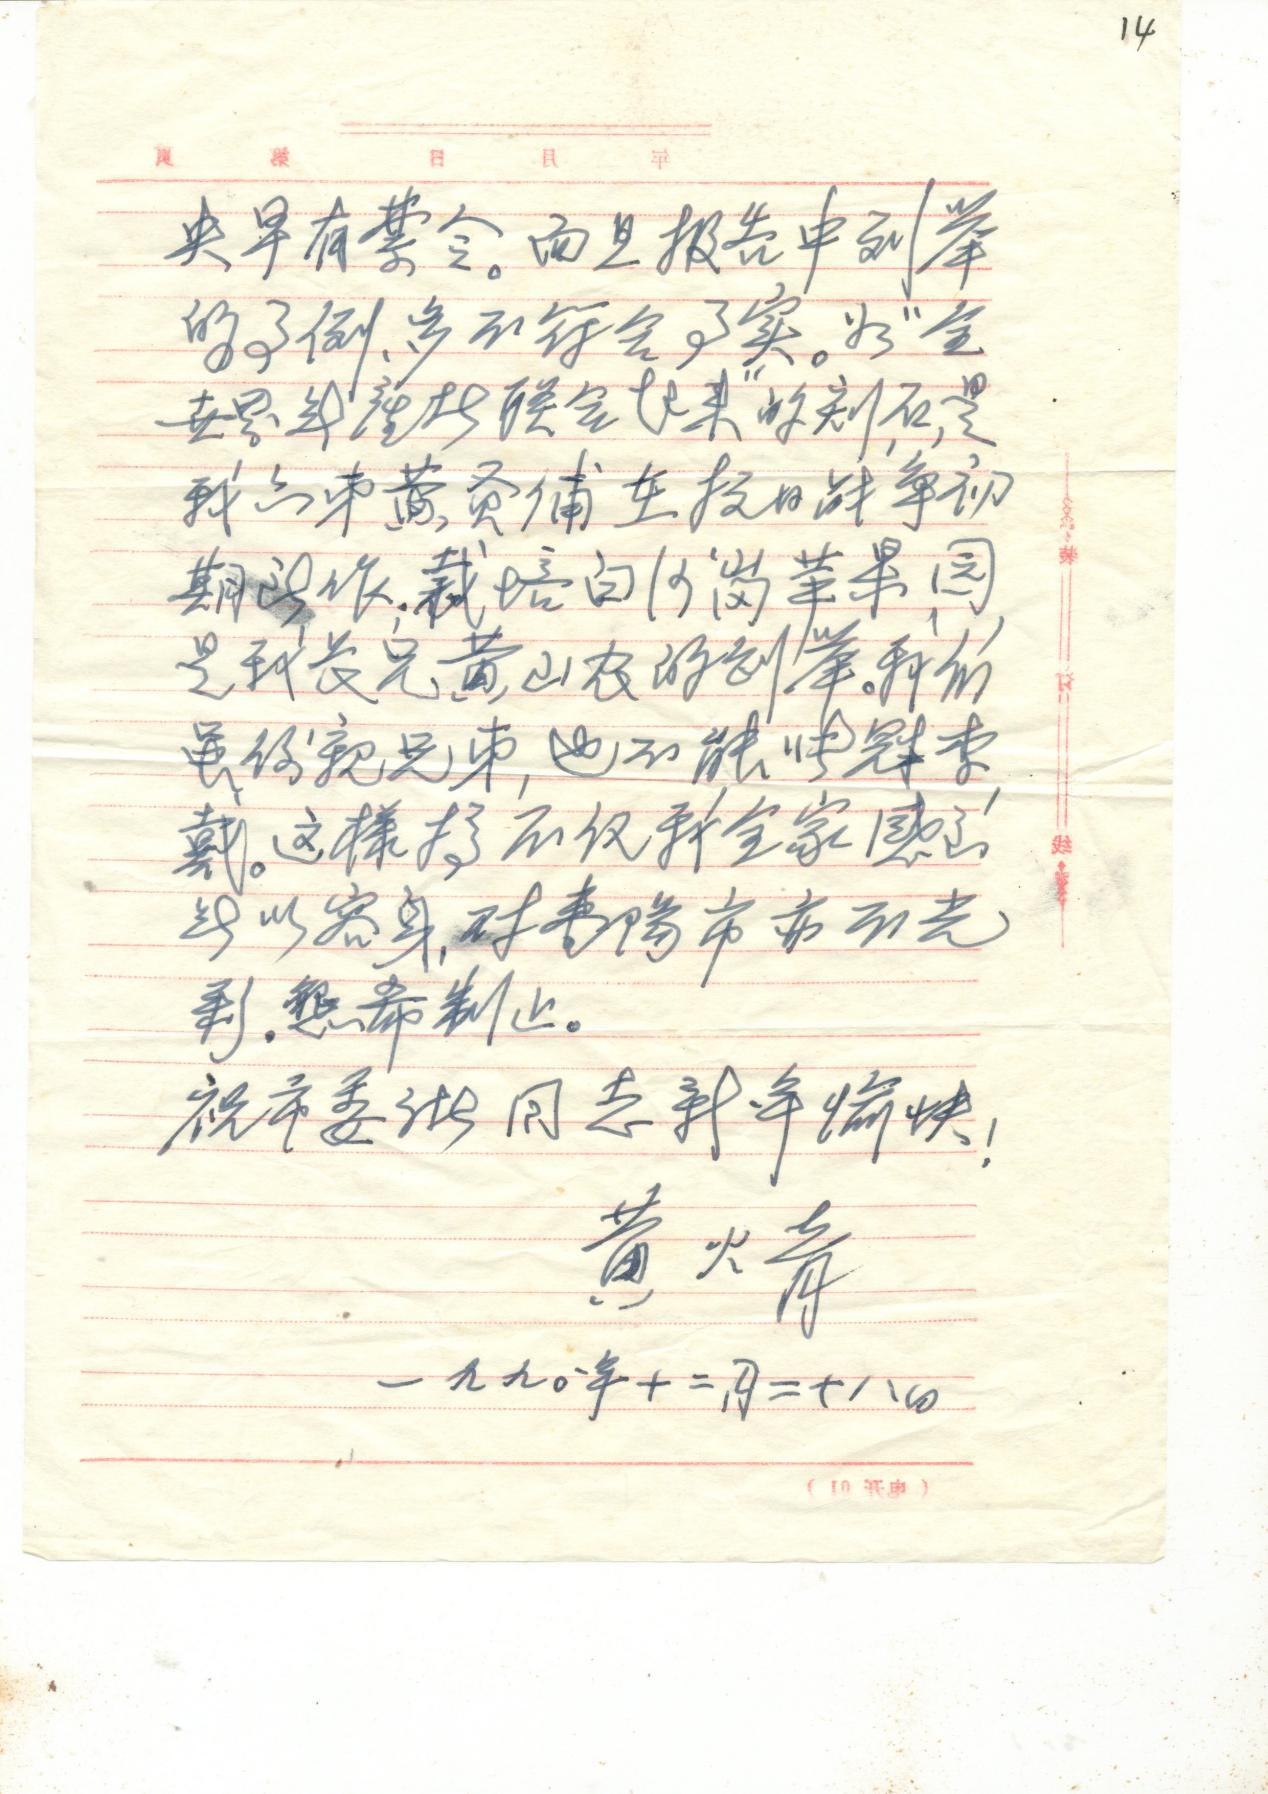 14
年 月 日 第 页
央早有禁令。而且报告中列举
的事例,多不符合事实。如“全
世界无产者联合起来”的刻石,是
我六弟黄 甫在抗日战争初
期所作;栽培白 岗苹果园,
是我长兄黄山农的创举。我们
虽份亲兄弟,也不能张冠李
戴。这样搞不仅我全家感到
无以容身,对枣阳市亦不光
彩。恳希制止。
祝市委诸同志新年愉快!
黄火青
一九九〇年十二月二十八日
装
订
线
(电开01)